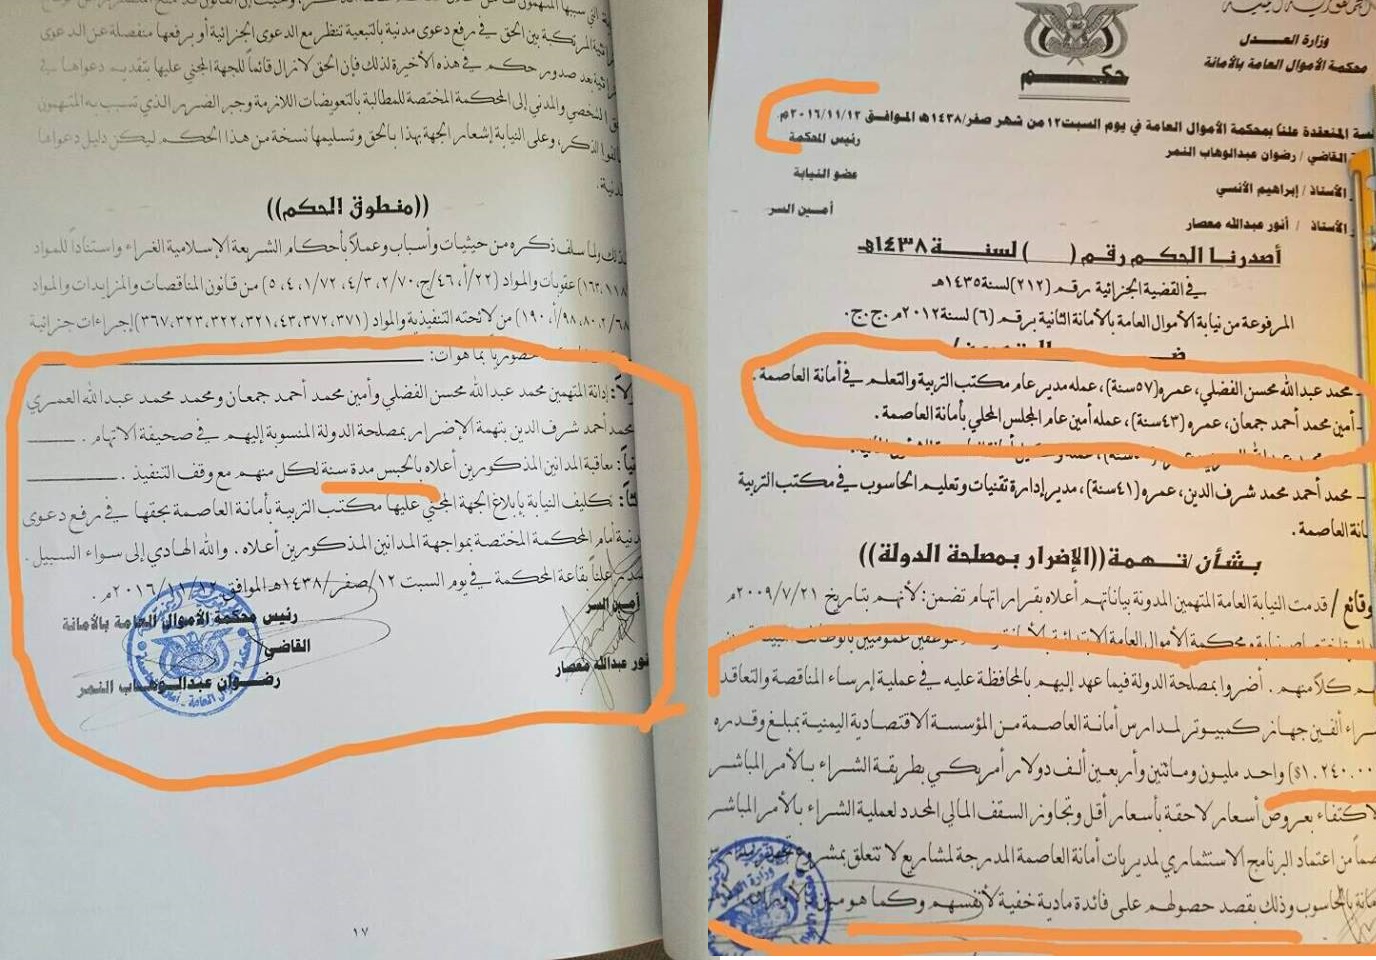 الجمهورية اليمنية
وزارة العدل
محكمة الأموال العامة بالأمانة
حكم
المنعقدة علناً بمحكمة الأموال العامة في يوم السبت ١٢ من شهر صفر/١٤٣٨هـ الموافق ٢٠١٦/١١/١٢م
القاضي / رضوان عبدالوهاب النمر
رئيس المحكمة
الأستاذ / إبراهيم الأنسي
عضو النيابة
الأستاذ / أنور عبدالله معصار
أمين السر
أصدرنا الحكم رقم ( ) لسنة ١٤٣٨هـ
في القضية الجزائية رقم (٢١٢) لسنة ١٤٣٥هـ
المرفوعة من نيابة الأموال العامة بالأمانة الثانية برقم (٦) لسنة ٢٠١٢م ج.ج.
- محمد عبدالله محسن الفضلي، عمره (٥٧سنة)، عمله مدير عام مكتب التربية والتعلم في أمانة العاصمة.
- أمين محمد أحمد جمعان، عمره (٤٣سنة)، عمله أمين عام المجلس المحلي بأمانة العاصمة.
- محمد أحمد محمد شرف الدين، عمره (٤١سنة)، مدير إدارة تقنيات وتعليم الحاسوب في مكتب التربية
العاصمة.
بشأن/تهمة ((الإضرار بمصلحة الدولة))
/ قدمت النيابة العامة المتهمين المدونة بياناتهم أعلاه بقرار اتهام تضمن: لأنهم بتاريخ ٢٠٠٩/٧/٢١م
كلاً منهم. أضروا بمصلحة الدولة فيما عهد إليهم بالمحافظة عليه في عملية إرساء المناقصة والتعاقد
ألفين جهاز كمبيوتر لمدارس أمانة العاصمة من المؤسسة الاقتصادية اليمنية بمبلغ وقدره
واحد مليون ومائتين وأربعين ألف دولار أمريكي بطريقة الشراء بالأمر المباشر
بعروض أسعار لاحقة بأسعار أقل وتجاوز السقف المالي المحدد لعملية الشراء بالأمر المباشر
من اعتماد البرنامج الاستثماري لمديريات أمانة العاصمة المدرجة لمشاريع لا تتعلق بمشروع
بالحاسوب وذلك بقصد حصولهم على فائدة مادية خفية لأنفسهم وكما هو مبين
المرتكبة بين الحق في رفع دعوى مدنية بالتبعية تنظر مع الدعوى الجزائية أو برفعها منفصلة عن الدعوى
بعد صدور حكم في هذه الأخيرة لذلك فإن الحق لازال قائماً للجهة المجني عليها بتقديم دعواها في
الشخصي والمدني إلى المحكمة المختصة للمطالبة بالتعويضات اللازمة وجبر الضرر الذي تسبب به المتهمون
الذكر، وعلى النيابة إشعار الجهة بهذا بالحق وتسليمها نسخة من هذا الحكم ليكن دليل دعواها
((منطوق الحكم))
ولما سلف ذكره من حيثيات وأسباب وعملاً بأحكام الشريعة الإسلامية الغراء واستناداً للمواد
عقوبات والمواد (٢٢/أ، ٤٦/ج، ٢/٧٠، ٤/٣، ١/٧٢، ٤، ٥) من قانون المناقصات والمزايدات والمواد
من لائحته التنفيذية والمواد (٣٧١، ٣٧٢، ٤٣، ٣٢١، ٣٢٢، ٣٢٣، ٣٦٧) إجراءات جزائية
بما هو آت:
إدانة المتهمين محمد عبدالله محسن الفضلي وأمين محمد أحمد جمعان ومحمد محمد عبدالله العمري
محمد أحمد شرف الدين بتهمة الإضرار بمصلحة الدولة المنسوبة إليهم في صحيفة الاتهام.
معاقبة المدانين المذكورين أعلاه بالحبس مدة سنة لكل منهم مع وقف التنفيذ.
تكليف النيابة بإبلاغ الجهة المجني عليها مكتب التربية بأمانة العاصمة بحقها في رفع دعوى
أمام المحكمة المختصة بمواجهة المدانين المذكورين أعلاه. والله الهادي إلى سواء السبيل.
علناً بقاعة المحكمة في يوم السبت ١٢/صفر/١٤٣٨هـ الموافق ٢٠١٦/١١/١٢م.
أمين السر
رئيس محكمة الأموال العامة بالأمانة
القاضي
أنور عبدالله معصار
رضوان عبدالوهاب النمر
١٧